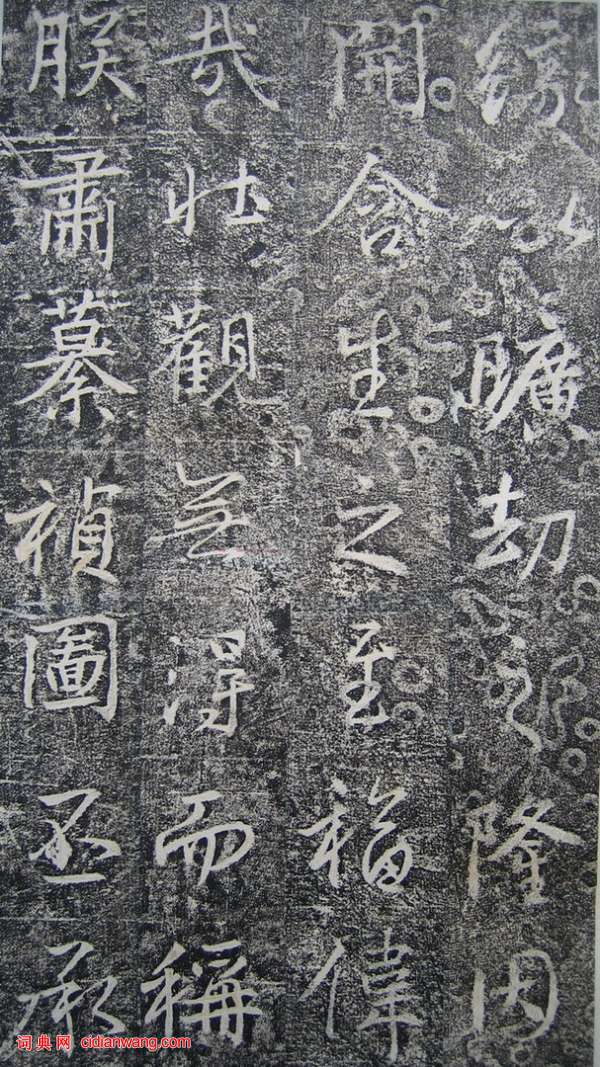 緣以曠劫之隆因
開含生之至福偉
哉壯觀無得而稱
朕肅纂禎圖丕承
词典网 cidianwang.com